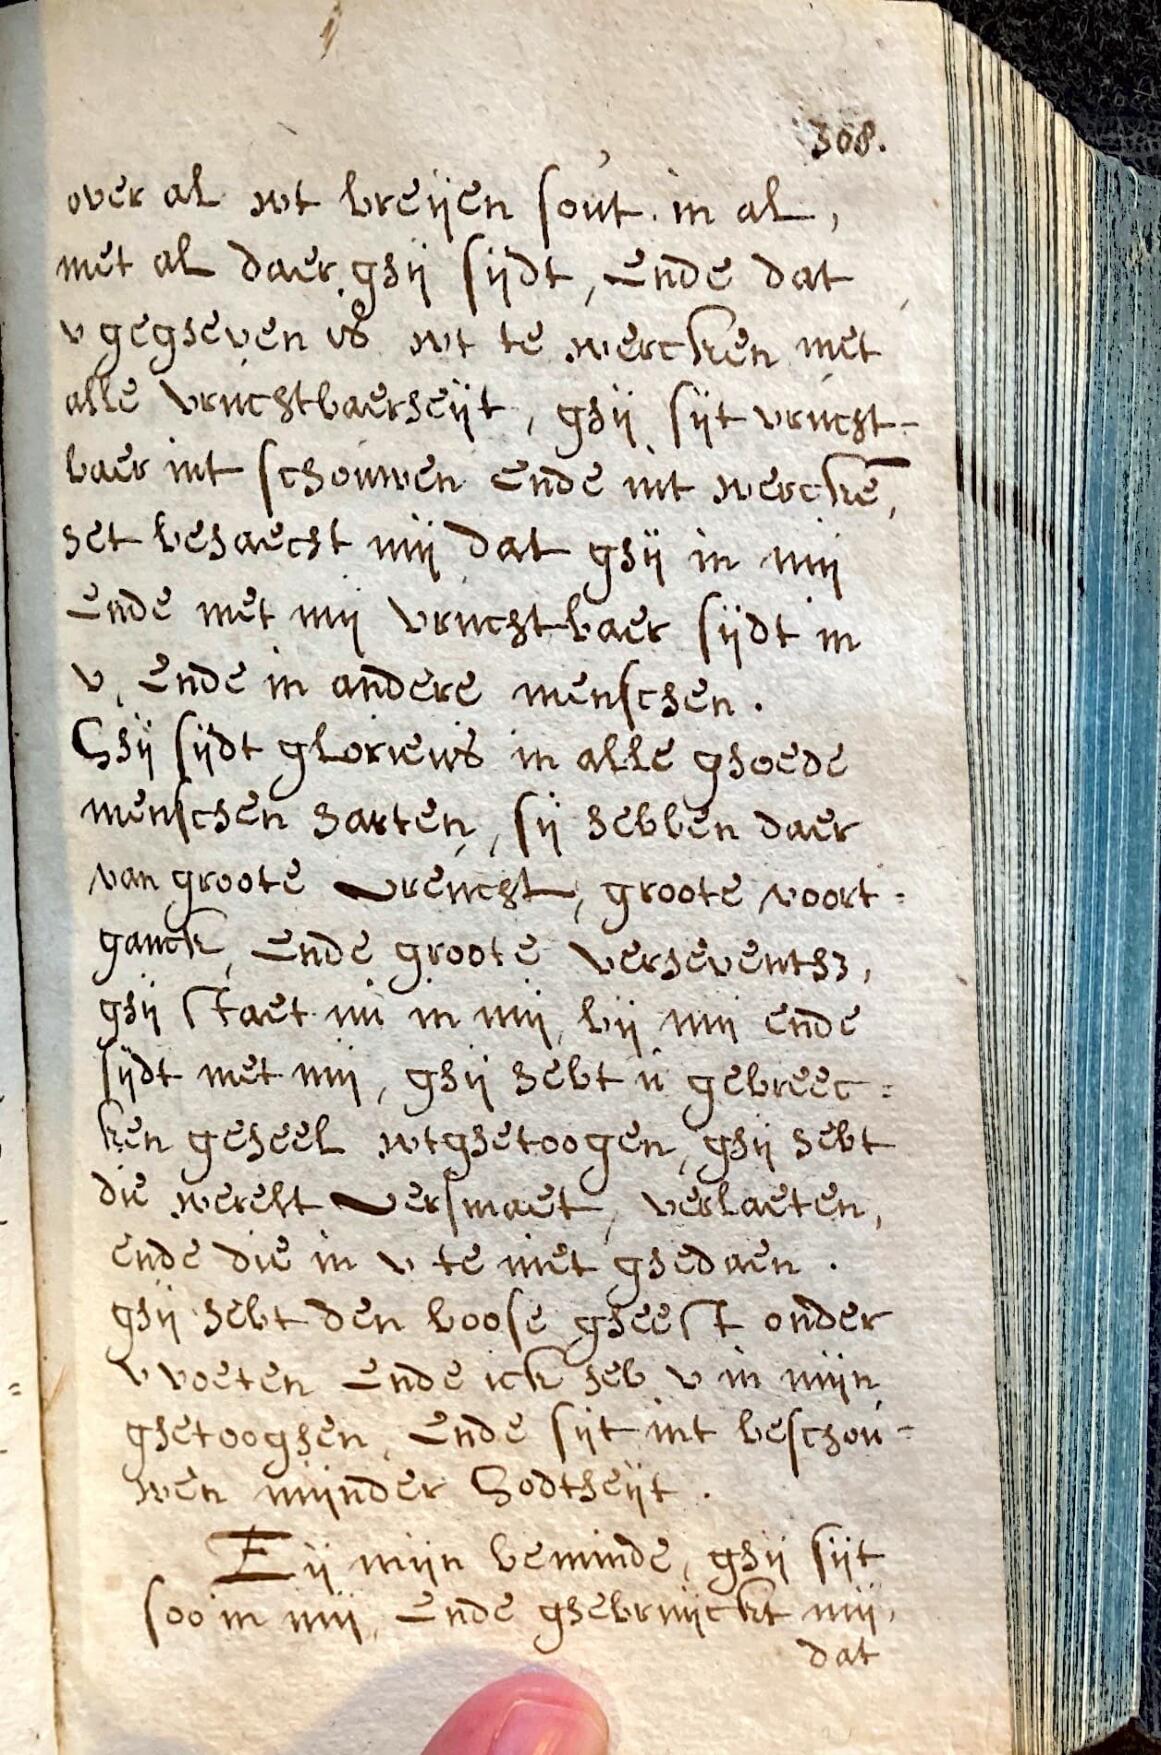 308.
over al wt breijen sout in al,
met al daer ghij sijdt, ende dat
v gegheven is wt te wercken met
alle vruchtbaerheijt, ghij sijt vrucht-
baer int schouwen ende int werckē,
het behaecht mij dat ghij in mij
ende met mij vruchtbaer sijdt in
v, ende in andere menschen.
Ghij sijdt glorieus in alle ghoede
menschen harten, sij hebben daer
van groote vreucht, groote voort=
ganck, ende groote verheventh3,
ghij staet nu in mij, bij mij ende
sijdt met mij, ghij hebt u gebreec=
ken geheel wtghetoogen, ghij hebt
die werelt versmaet, verlaeten,
ende die in v te niet ghedaen.
ghij hebt den boose gheest onder
v voeten ende ick heb v in mijn
ghetooghen, ende sijt int beschou=
wen mijnder Godtheijt.
Eij mijn beminde, ghij sijt
soo in mij, ende ghebruijckt mij,
dat